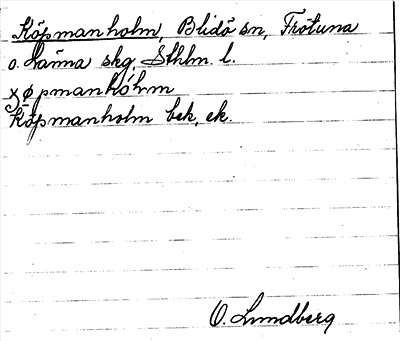 Köpmanholm, Blidö sn, Frötuna
o. Länna skg, Sthlm. l.
Köpmanholm bek, ek.
O. Lundberg